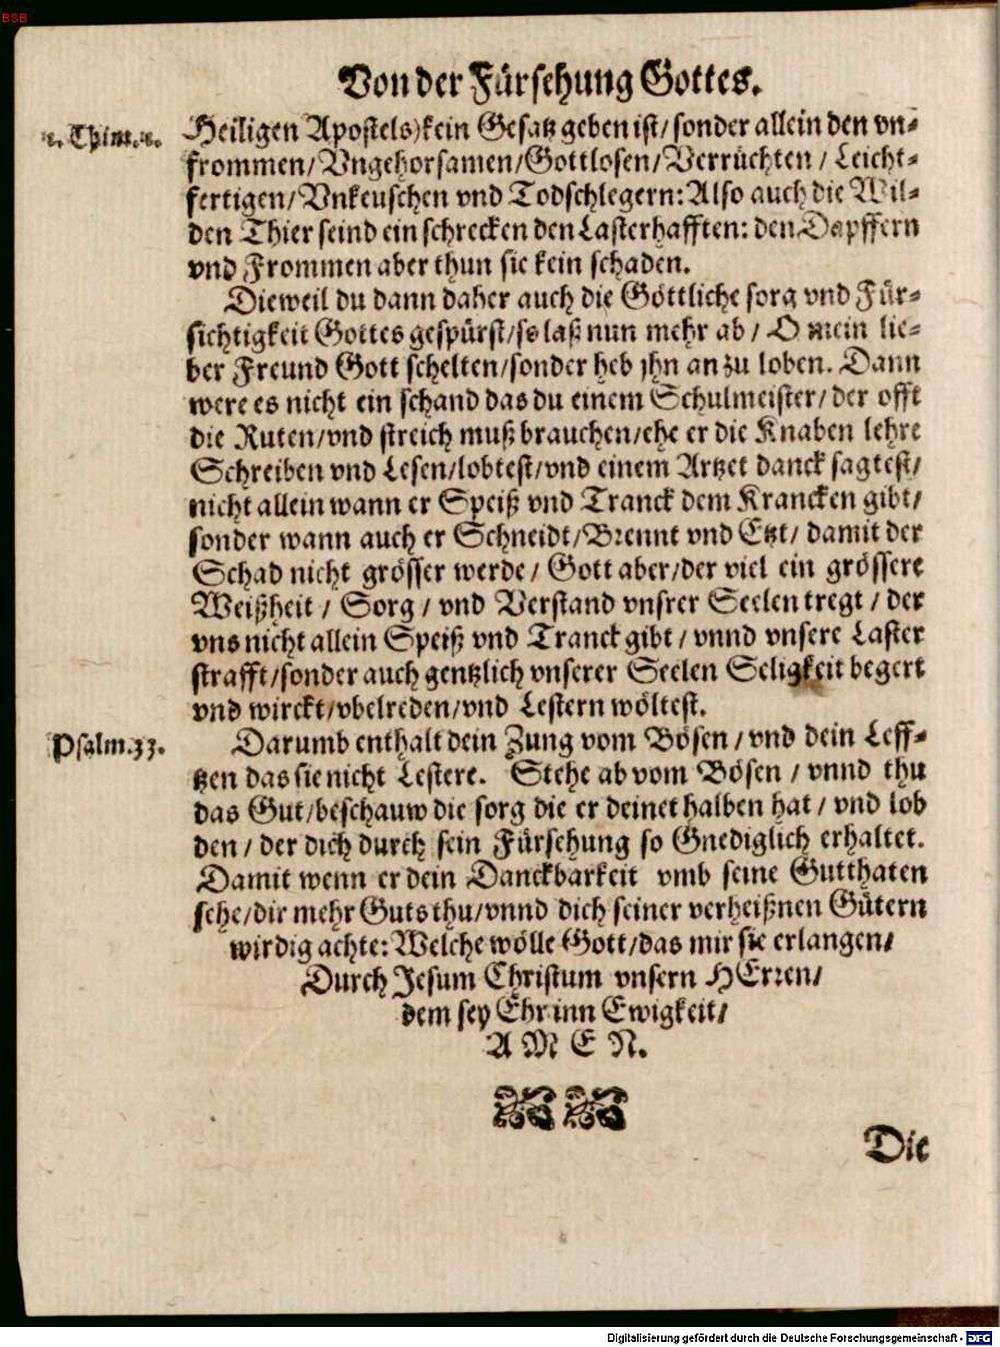 BSB
Von der Fürsehung Gottes.
1. Thim. 1.
Heiligen Apostels) kein Gesatz geben ist / sonder allein den vn-
frommen / Vngehorsamen / Gottlosen / Verrüchten / Leicht-
fertigen / Vnkeuschen vnd Todschlegern: Also auch die Wil-
den Thier seind ein schrecken den Lasterhafften: den Dapffern
vnd Frommen aber thun sie kein schaden.
Dieweil du dann daher auch die Göttliche sorg vnd Für-
sichtigkeit Gottes gespürst / so laß nun mehr ab / O mein lie-
ber Freund Gott schelten / sonder heb jhn an zu loben. Dann
were es nicht ein schand das du einem Schulmeister / der offt
die Ruten / vnd streich muß brauchen / ehe er die Knaben lehre
Schreiben vnd Lesen / lobtest / vnd einem Artzet danck sagtest /
nicht allein wann er Speiß vnd Tranck dem Krancken gibt /
sonder wann auch er Schneidt / Brennt vnd Etzt / damit der
Schad nicht grösser werde / Gott aber / der viel ein grössere
Weißheit / Sorg / vnd Verstand vnsrer Seelen tregt / der
vns nicht allein Speiß vnd Tranck gibt / vnnd vnsere Laster
strafft / sonder auch gentzlich vnserer Seelen Seligkeit begert
vnd wirckt / vbelreden / vnd Lestern wöltest.
Psalm. 33.
Darumb enthalt dein Zung vom Bösen / vnd dein Leff-
tzen das sie nicht Lestere. Stehe ab vom Bösen / vnnd thu
das Gut / beschauw die sorg die er deinet halben hat / vnd lob
den / der dich durch sein Fürsehung so Gnediglich erhaltet.
Damit wenn er dein Danckbarkeit vmb seine Gutthaten
sehe / dir mehr Guts thu / vnnd dich seiner verheißnen Gütern
wirdig achte: Welche wölle Gott / das mir sie erlangen /
Durch Jesum Christum vnsern HErren /
dem sey Ehr inn Ewigkeit /
A M E N.
Die
Digitalisierung gefördert durch die Deutsche Forschungsgemeinschaft - DFG